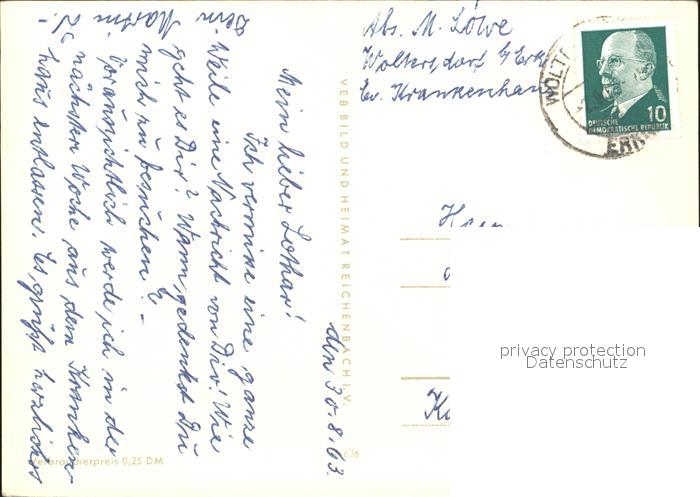 Abs. M. Löwe
Woltersdorf b/ Erk
Ev. Krankenhau
DEUTSCHE
DEMOKRATISCHE REPUBLIK
10
WOLT
ERK
den 30.8.63.
Mein lieber Lothar!
Ich vermisse eine ganze
Weile eine Nachricht von Dir! Wie
geht es Dir? Wann gedenkst Du
mich zu besuchen? -
Voraussichtlich werde ich in der
nächsten Woche aus dem Kranken-
haus entlassen. Es grüßt herzlichst
Dein Martin
VEB BILD UND HEIMAT REICHENBACH I. V.
Verbraucherpreis 0,25 DM
636
privacy protection
Datenschutz